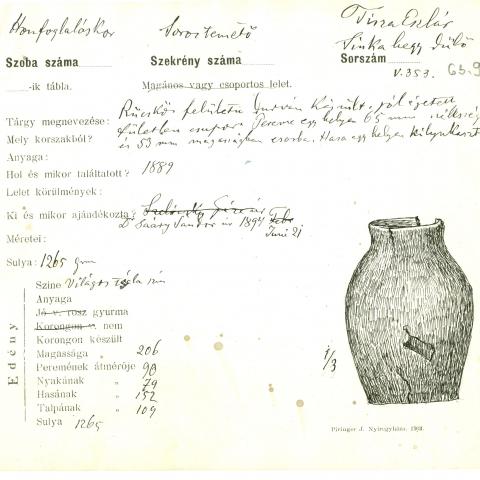 Honfoglaláskor Soros temető Tisza Eszlár
Sinka hegy dűlő
Szoba száma Szekrény száma Sorszám
V. 353. 65.9
-ik tábla. Magános vagy csoportos lelet.
Tárgy megnevezése: Rücskös felületű durván készült, jól égetett
Mely korszakból? fületlen csupor. Pereme egy helyen 65 mm szélességben
Anyaga: és 53 mm magasságban csorba. Hasa egy helyen
Hol és mikor találtatott? 1889
Lelet körülmények:
Ki és mikor ajándékozta? úr
Dr Saáry Sándor úr 1894
Juni 21
Méretei:
Sulya: 1265 grm
Edény
Szine Világos szín
Anyaga
Jó v. rosz gyurma
Korongon v. nem
Korongon készült
Magassága 206
Peremének átmérője 90
Nyakának " 79
Hasának " 152
Talpának " 109
Sulya 1265
1/3
Piringer J. Nyiregyháza, 1903.